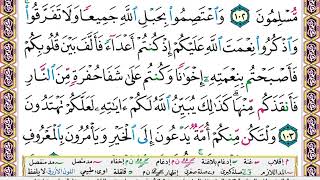 مُّسْلِمُونَ ١٠٢ وَاعْتَصِمُوا بِحَبْلِ اللَّهِ جَمِيعًا وَلَا تَفَرَّقُوا
وَاذْكُرُوا نِعْمَتَ اللَّهِ عَلَيْكُمْ إِذْ كُنتُمْ أَعْدَاءً فَأَلَّفَ بَيْنَ قُلُوبِكُمْ
فَأَصْبَحْتُم بِنِعْمَتِهِ إِخْوَانًا وَكُنتُمْ عَلَىٰ شَفَا حُفْرَةٍ مِّنَ النَّارِ
فَأَنقَذَكُم مِّنْهَا كَذَٰلِكَ يُبَيِّنُ اللَّهُ لَكُمْ آيَاتِهِ لَعَلَّكُمْ تَهْتَدُونَ
١٠٣ وَلْتَكُن مِّنكُمْ أُمَّةٌ يَدْعُونَ إِلَى الْخَيْرِ وَيَأْمُرُونَ بِالْمَعْرُوفِ